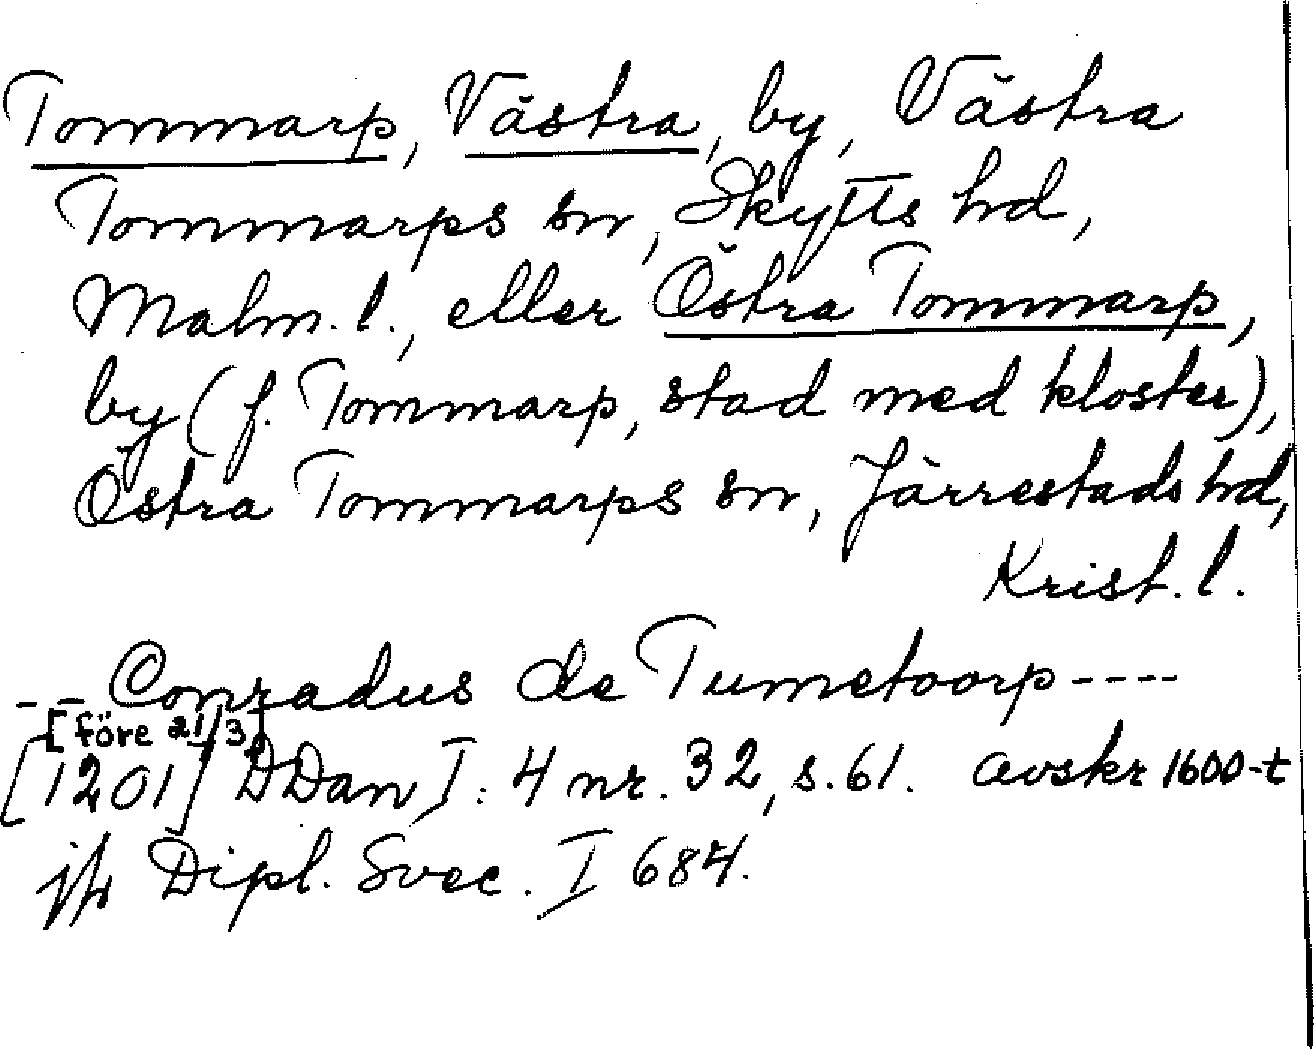 Tommarp, Västra, by, Västra
Tommarps sn, Skytts hd,
Malm. l., eller Östra Tommarp,
by (f. Tommarp, stad med kloster),
Östra Tommarps sn, Järrestads hd,
Krist. l.
-- Conradus de Tumetoorp ----
[före 21/3]
[1201] DDan I: 4 nr. 32, s. 61. avskr 1600-t
jfr Dipl. Svec. I 684.